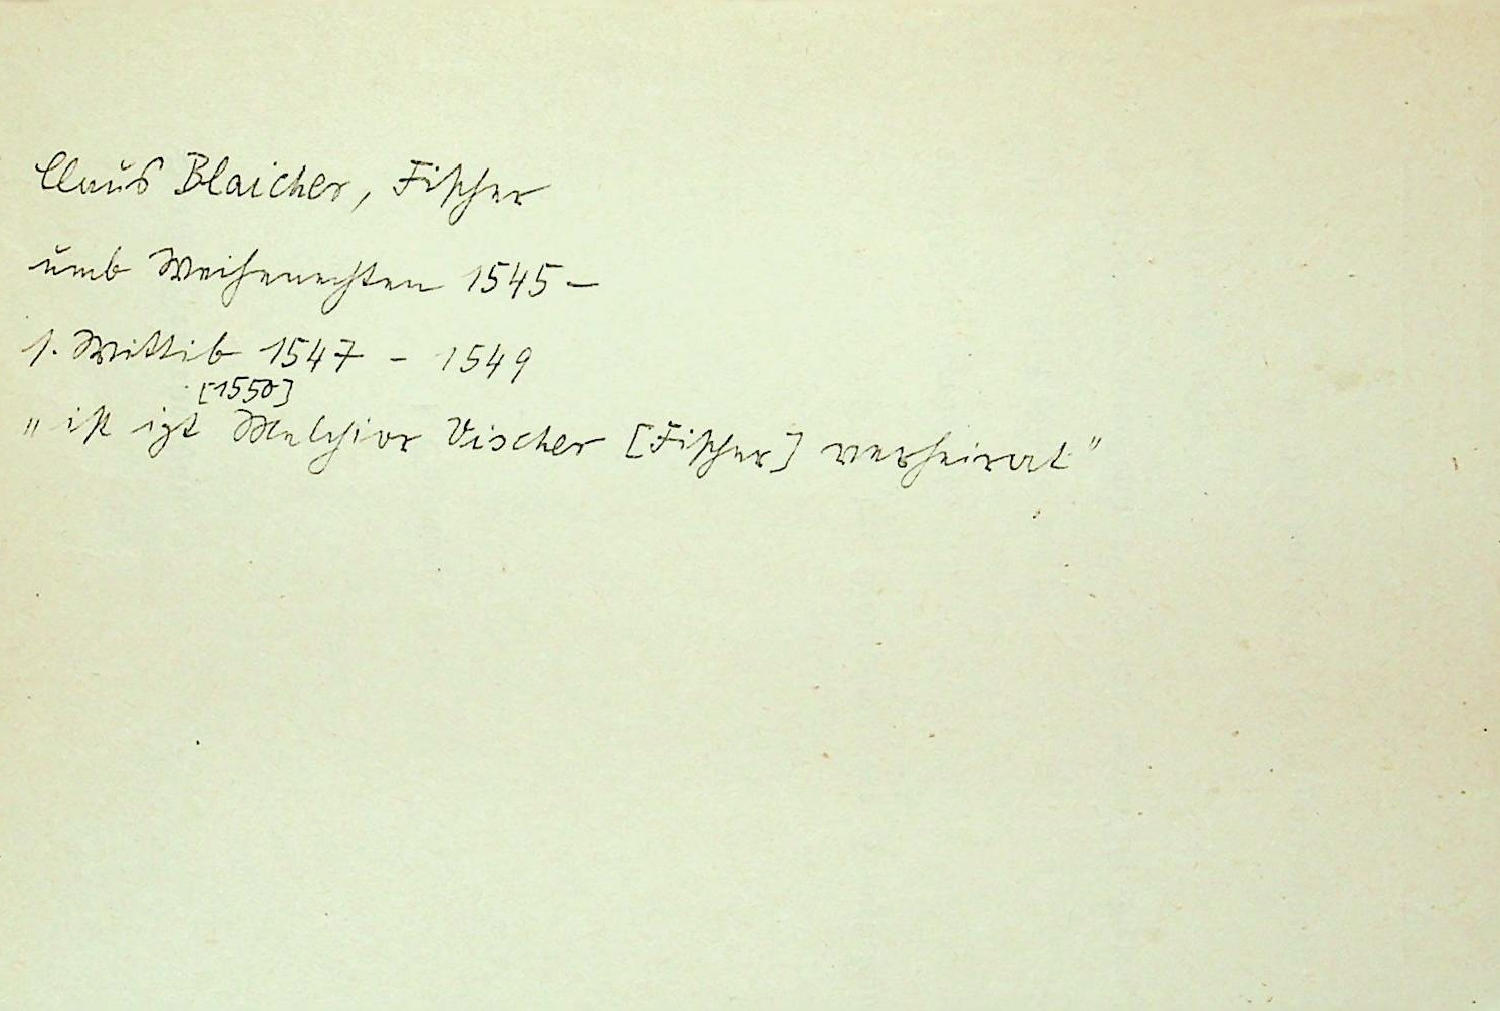 Claus Blaicher, Fischer
umb Weihenechten 1545 –
s. Wittib 1547 – 1549
[1550]
"ist izt Melchior Vischer [Fischer] verheirat"